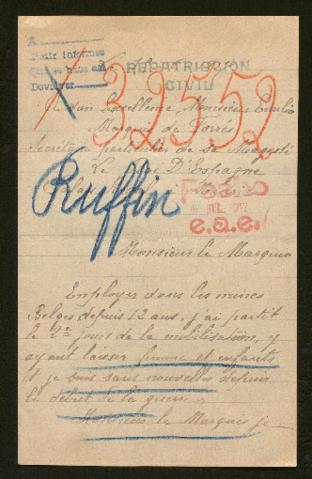 A
Pour informer
Devolver
REPATRIACION
CIVIL
32552
A son Excellence, Monsieur Emilio
Marques de Torrès
Secrétaire particulier de sa Majesté
Le Roi D'Espagne
Ruffin
1917
e.a.e.
Monsieur le Marquis
Employer dans les mines
Belges depuis 12 ans, j'ai partit
le 2e jours de la mobilisation, y
ayant laisser femme et enfants
et je suis sans nouvelles depuis
le début de la guerre.
Monsieur le Marques je